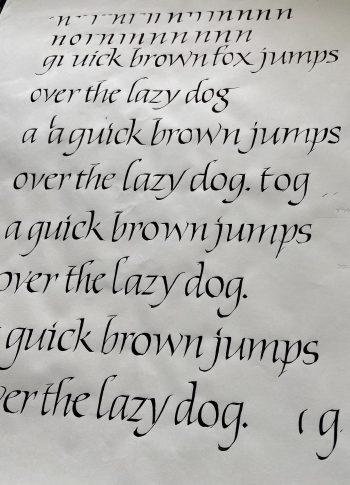 n n n n n n n n n n
n o r n n n n n n n n
quick brown fox jumps
over the lazy dog
a a quick brown jumps
over the lazy dog. t o g
a quick brown jumps
over the lazy dog.
quick brown jumps
ver the lazy dog. g